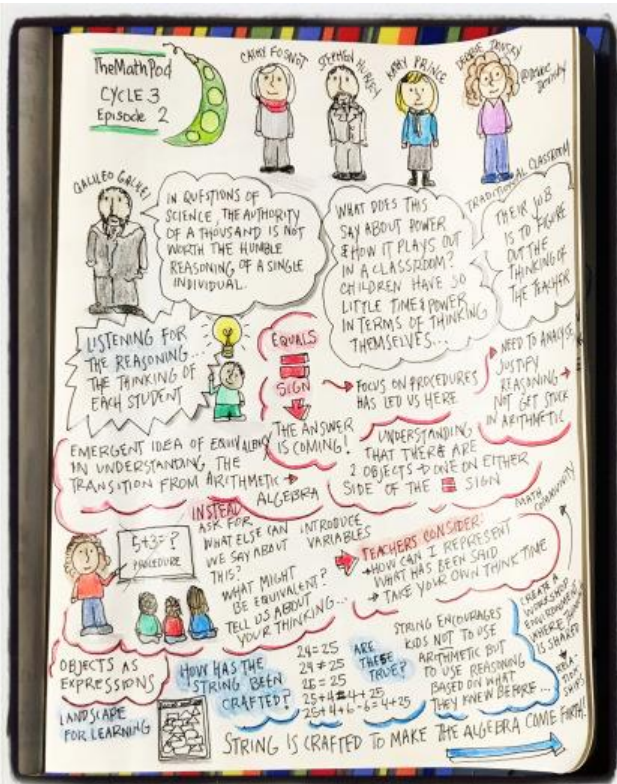 TheMathPod
CYCLE 3
Episode 2
CATHY FOSNOT
STEPHEN HURLEY
KATHY PRINCE
DEBBIE DONSKY
GALILEO GALILEI
IN QUESTIONS OF
SCIENCE, THE AUTHORITY
OF A THOUSAND IS NOT
WORTH THE HUMBLE
REASONING OF A SINGLE
INDIVIDUAL.
WHAT DOES THIS
SAY ABOUT POWER
& HOW IT PLAYS OUT
IN A CLASSROOM?
CHILDREN HAVE SO
LITTLE TIME & POWER
IN TERMS OF THINKING
THEMSELVES...
TRADITIONAL CLASSROOM
THEIR JOB
IS TO FIGURE
OUT THE
THINKING OF
THE TEACHER
LISTENING FOR
THE REASONING...
THE THINKING OF
EACH STUDENT
EQUALS
=
SIGN
THE ANSWER
IS COMING!
FOCUS ON PROCEDURES
HAS LED US HERE
NEED TO ANALYSE,
JUSTIFY
REASONING →
NOT GET STUCK
IN ARITHMETIC
EMERGENT IDEA OF EQUIVALENCE
IN UNDERSTANDING THE
TRANSITION FROM ARITHMETIC →
ALGEBRA
UNDERSTANDING
THAT THERE ARE
2 OBJECTS → ONE ON EITHER
SIDE OF THE = SIGN
5+3=?
PROCEDURE
INSTEAD
ASK FOR
WHAT ELSE CAN
WE SAY ABOUT
THIS?
WHAT MIGHT
BE EQUIVALENT?
TELL US ABOUT
YOUR THINKING...
INTRODUCE
VARIABLES
TEACHERS CONSIDER:
→ HOW CAN I REPRESENT
WHAT HAS BEEN SAID
→ TAKE YOUR OWN THINK TIME
MATH COMMUNITY
CREATE A
WORKSHOP
ENVIRONMENT
WHERE THINKING
IS SHARED
RELATIONSHIPS
OBJECTS AS
EXPRESSIONS
LANDSCAPE
FOR LEARNING
HOW HAS THE
STRING BEEN
CRAFTED?
24=25
24≠25
25=25
25+4=4+25
25+4+6-6=4+25
ARE
THESE
TRUE?
STRING ENCOURAGES
KIDS NOT TO USE
ARITHMETIC BUT
TO USE REASONING
BASED ON WHAT
THEY KNEW BEFORE...
STRING IS CRAFTED TO MAKE THE ALGEBRA COME FORTH!